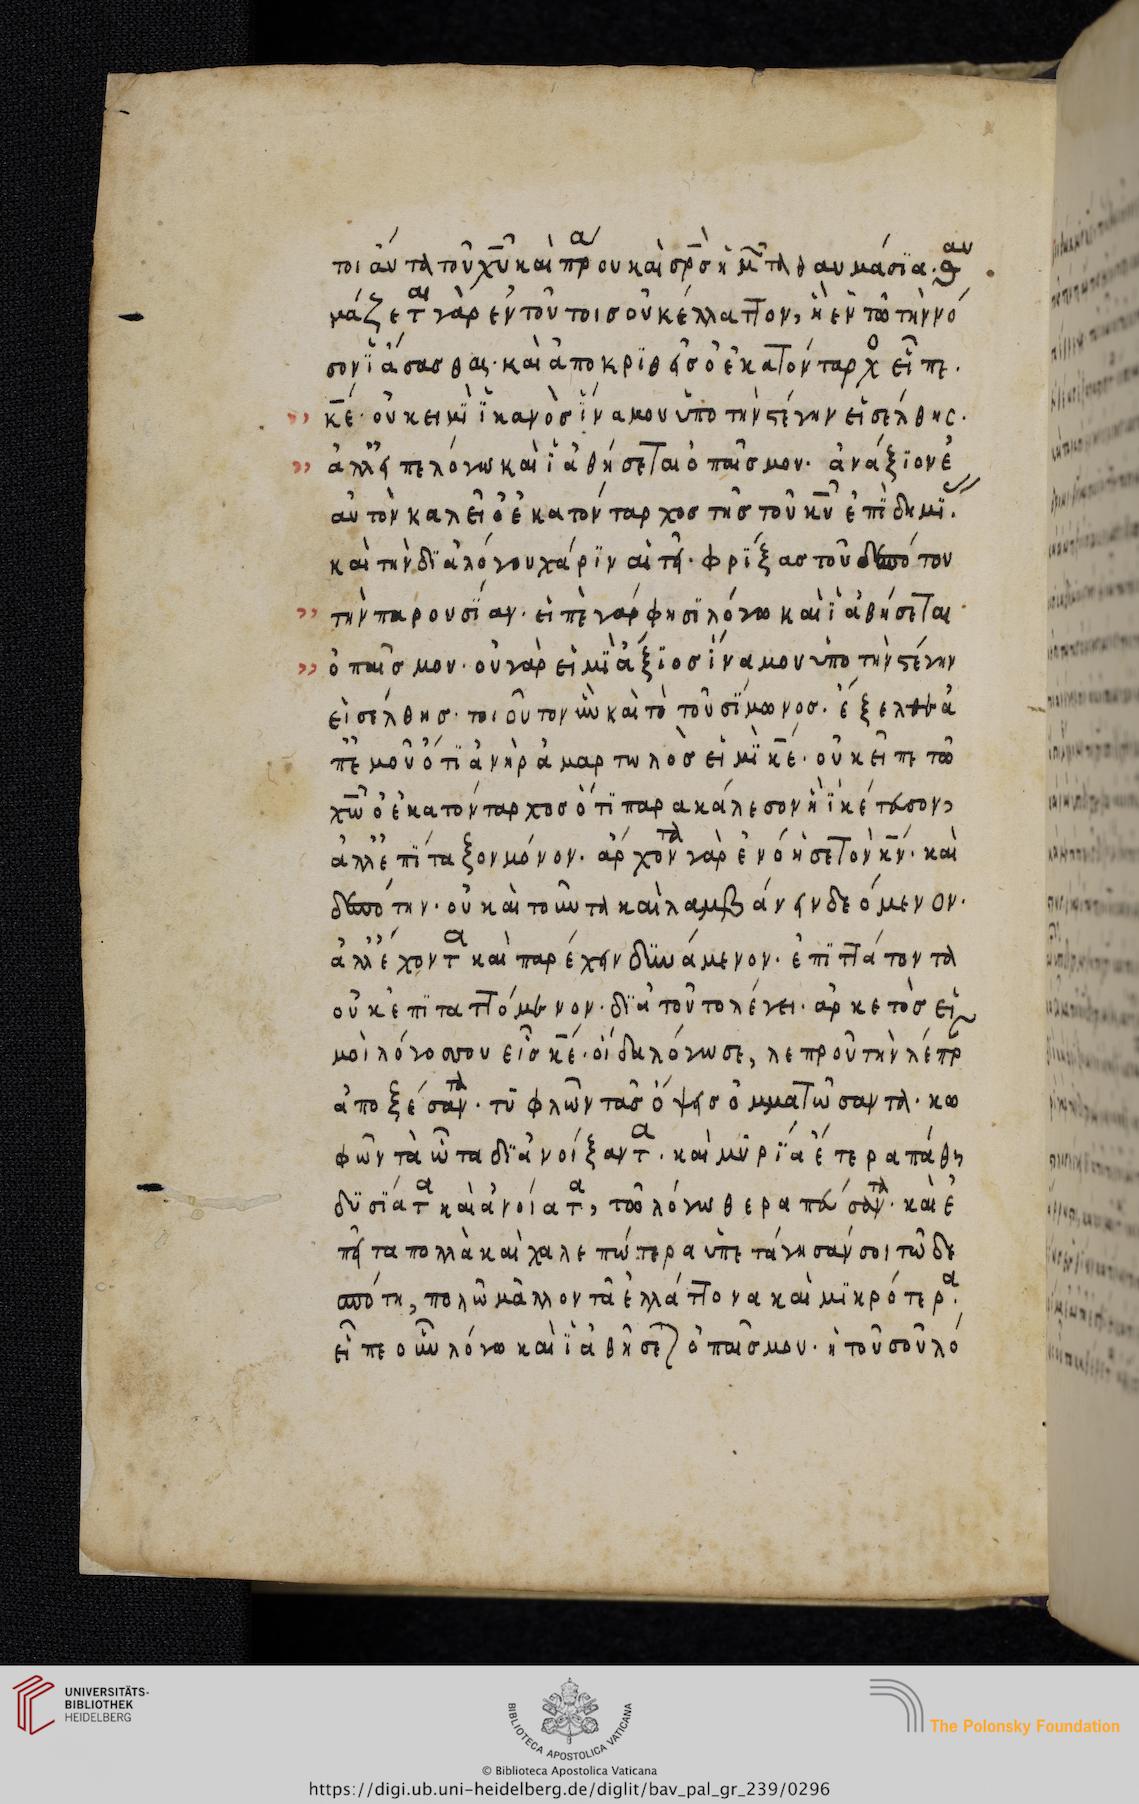 τοιαῦτα τοῦ χῦ καὶ πρου καὶ σρ̅σ ἡμ̅ τὰ θαυμάσϊα. θαυ
μάζεται γὰρ ἐν τούτοισ οὐκ ἔλλαττον, ἢ ἐν τῶ τὴν νό
σον ϊάσασθαι· καὶ ἀποκρϊθεὶσ ὁ ἑκατόνταρχο εἶπε·
κ̅ε· οὐκ ειμϊ ϊκανὸσ ἵνα μου ὑπο τὴν στέγην εἰσέλθης·
ἀλλ' εἰπὲ λόγω καὶ ϊαθήσεται ὁ παῖσ μου· ἀνάξϊον ἑ
αυτὸν καλεῖ ὁ ἑκατόνταρχοσ τῆσ τοῦ κῦ ἐπϊδημϊ
καὶ τὴν δϊα λόγου χάρϊν αἰτεῖ· φρϊξασ τοῦ δεσπότου
τὴν παρουσϊαν· εἰπὲ γάρ φησϊ λόγω καὶ ϊαθήσεται
ὁ παῖσ μου· οὐ γὰρ εἰμϊ ἄξϊοσ ἵνα μου ὑπο τὴν στέγην
εἰσέλθησ· τοιοῦτον οὖν καὶ τὸ τοῦ σϊμωνοσ· ἔξελθε ἀ
π' ἐμοῦ ὅτϊ ἀνὴρ ἁμαρτωλόσ εἰμϊ κ̅ε· οὐκ εἶπε τῶ
χ̅ω ὁ ἑκατόνταρχοσ ὅτϊ παρακάλεσον ἢ ϊκέτευσον,
ἀλλ' ἐπϊταξον μόνον· ἄρχοντα γὰρ ἐνόησε τὸν κ̅ν· καὶ
δεσπότην· οὐκ αἰτοῦντα καὶ λαμβάνειν δεόμενον·
ἀλλ' ἔχοντα καὶ παρέχειν δϋνάμενον· ἐπϊτάττοντα
οὐκ ἐπϊταττόμενον· δϊὰ τοῦτο λέγει· ἀρκετὸσ εἷ
μοὶ λόγοσ σου εἷσ κ̅ε· οἶδα λόγωσε, λεπροῦ τὴν λέπρ
ἀποξέσαντα· τϋφλῶν τὰσ ὄψεισ ὀμματώσαντα· κω
φῶν τὰ ὦτα δϊανοίξαντα· καὶ μϋρϊα ἕτερα πάθη
δϋσϊατα καὶ ἀνοίατα, τῶ λόγω θεραπεύσαντα· καὶ ἐ
πεὶ τα πολλὰ καὶ χαλεπώτερα ὑπετάγησαν σοι τῶ δε
σπότη, πολῶ μᾶλλον τὰ ἐλλάττονα καὶ μϊκρότερα.
εἶπε οὖν λόγω καὶ ϊαθήσεται ὁ παῖσ μου· ἡ τοῦ σοῦ λό
UNIVERSITÄTS-
BIBLIOTHEK
HEIDELBERG
BIBLIOTECA APOSTOLICA VATICANA
The Polonsky Foundation
© Biblioteca Apostolica Vaticana
https://digi.ub.uni-heidelberg.de/diglit/bav_pal_gr_239/0296